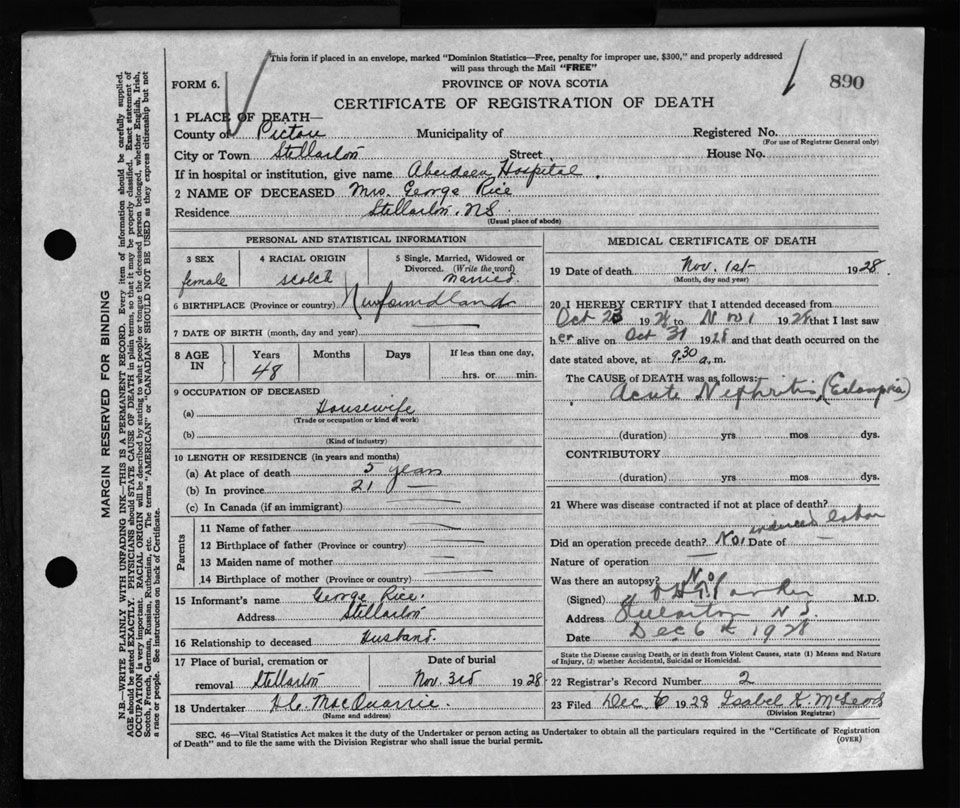 This form if placed in an envelope, marked "Dominion Statistics—Free, penalty for improper use, $300," and properly addressed
will pass through the Mail "FREE"
890
FORM 6.
PROVINCE OF NOVA SCOTIA
CERTIFICATE OF REGISTRATION OF DEATH
1 PLACE OF DEATH—
County of Pictou Municipality of Registered No.
(For use of Registrar General only)
City or Town Stellarton Street House No.
If in hospital or institution, give name Aberdeen Hospital.
2 NAME OF DECEASED Mrs. George Rice
Residence Stellarton. N.S
(Usual place of abode)
PERSONAL AND STATISTICAL INFORMATION
3 SEX 4 RACIAL ORIGIN 5 Single, Married, Widowed or
Divorced. (Write the word)
female scotch married
6 BIRTHPLACE (Province or country) Newfoundland
7 DATE OF BIRTH (month, day and year)
8 AGE IN Years Months Days If less than one day,
48 hrs. or min.
9 OCCUPATION OF DECEASED
(a) Housewife
(Trade or occupation or kind of work)
(b)
(Kind of industry)
10 LENGTH OF RESIDENCE (in years and months)
(a) At place of death 5 years
(b) In province 21
(c) In Canada (if an immigrant)
Parents
11 Name of father
12 Birthplace of father (Province or country)
13 Maiden name of mother
14 Birthplace of mother (Province or country)
15 Informant's name George Rice.
Address Stellarton
16 Relationship to deceased Husband.
17 Place of burial, cremation or Date of burial
removal Stellarton Nov. 3rd 1928
18 Undertaker MacQuarrie.
(Name and address)
MEDICAL CERTIFICATE OF DEATH
19 Date of death Nov. 1st 1928.
(Month, day and year)
20 I HEREBY CERTIFY that I attended deceased from
Oct 23 1928 to Nov 1 1928 that I last saw
her alive on Oct 31 1928 and that death occurred on the
date stated above, at 9.30 a. m.
The CAUSE of DEATH was as follows:
Acute Nephritis (Eclampsia)
(duration) yrs mos dys.
CONTRIBUTORY
(duration) yrs. mos dys.
21 Where was disease contracted if not at place of death?
induced labor
Did an operation precede death? No. Date of
Nature of operation
Was there an autopsy? No
(Signed) M.D.
Address Stellarton N.S.
Date Dec 6th 1928
State the Disease causing Death, or in death from Violent Causes, state (1) Means and Nature
of Injury, (2) whether Accidental, Suicidal or Homicidal.
22 Registrar's Record Number 2
23 Filed Dec 6 1928 Isabel K. McLeod
(Division Registrar)
SEC. 46—Vital Statistics Act makes it the duty of the Undertaker or person acting as Undertaker to obtain all the particulars required in the "Certificate of Registration
of Death" and to file the same with the Division Registrar who shall issue the burial permit.
(OVER)
MARGIN RESERVED FOR BINDING
N.B.—WRITE PLAINLY WITH UNFADING INK—THIS IS A PERMANENT RECORD. Every item of information should be carefully supplied.
AGE should be stated EXACTLY. PHYSICIANS should STATE CAUSE OF DEATH in plain terms, so that it may be properly classified. Exact statement of
OCCUPATION is very important. RACIAL ORIGIN will be described by stating to what people or tongue the deceased person belonged, whether English, Irish,
Scotch, French, German, Russian, Ruthenian, etc. The terms "AMERICAN" or "CANADIAN" SHOULD NOT BE USED as they express citizenship but not
a race or people. See instructions on back of Certificate.